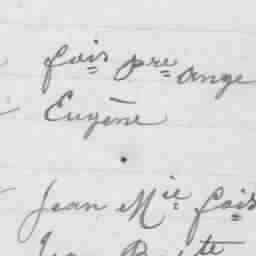 fois pre ange
Eugène
Jean Mie fois
Jean Bte